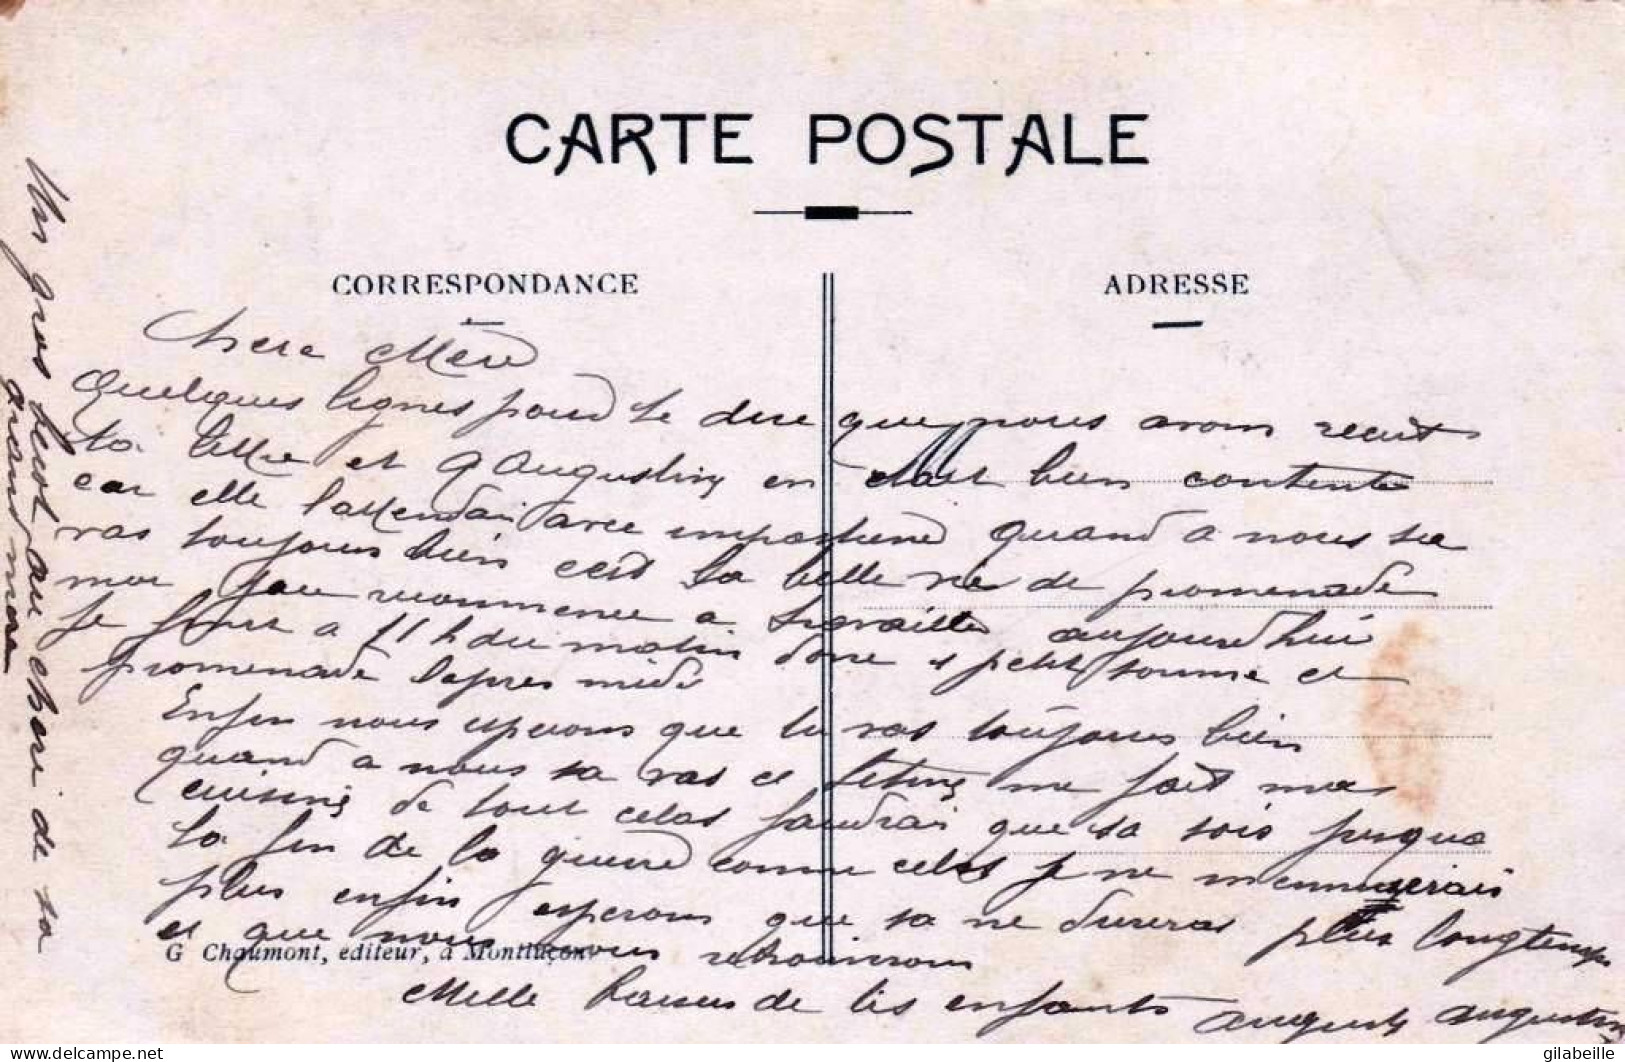 CARTE POSTALE
CORRESPONDANCE
ADRESSE
Chere Mère
Quelques lignes pour te dire que nous avons recut
ta lettre et Augustine en etait bien contente
car elle lattendai avec impatience quand a nous sa
vas toujours bien cest la belle vie de promenade
moi jai recommence a travailler aujourdhui
je finit a 11 h du matin donc 1 petit somme et
promenade lapres midi
Enfin nous esperons que tu vas toujours bien
quand a nous sa vas et titine me fait ma
cuisine de tout celas faudrai que sa sois jusqua
la fin de la guerre comme celas je ne mennuyerais
plus enfin esperons que sa ne dureras plus longtemps
et que nous nous retrouverons
G Chaumont, editeur, à Montluçon
Mille baisers de tes enfants Auguste Augustine
Un gros becot au cheri de sa
grand mère
gilabeille